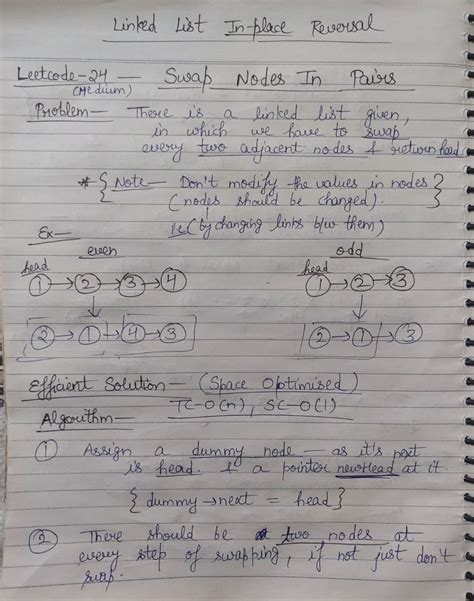 Linked List In-place Reversal
Leetcode-24 — Swap Nodes In Pairs
(Medium)
Problem— There is a linked list given,
in which we have to swap
every two adjacent nodes & return head
* { Note— Don't modify the values in nodes }
(nodes should be changed).
ie (by changing links b/w them)
Ex—
even odd
head head
1 → 2 → 3 → 4 1 → 2 → 3
2 → 1 → 4 → 3 2 → 1 → 3
Efficient Solution— (Space Optimised)
TC-O(n), SC-O(1)
Algorithm—
1 Assign a dummy node — as it's next
is head. & a pointer newHead at it.
{ dummy → next = head }
2 There should be two nodes at
every step of swapping, if not just don't
swap.